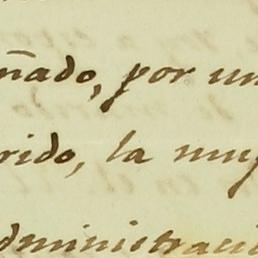 ñado, por un
rido, la muj
dministraci